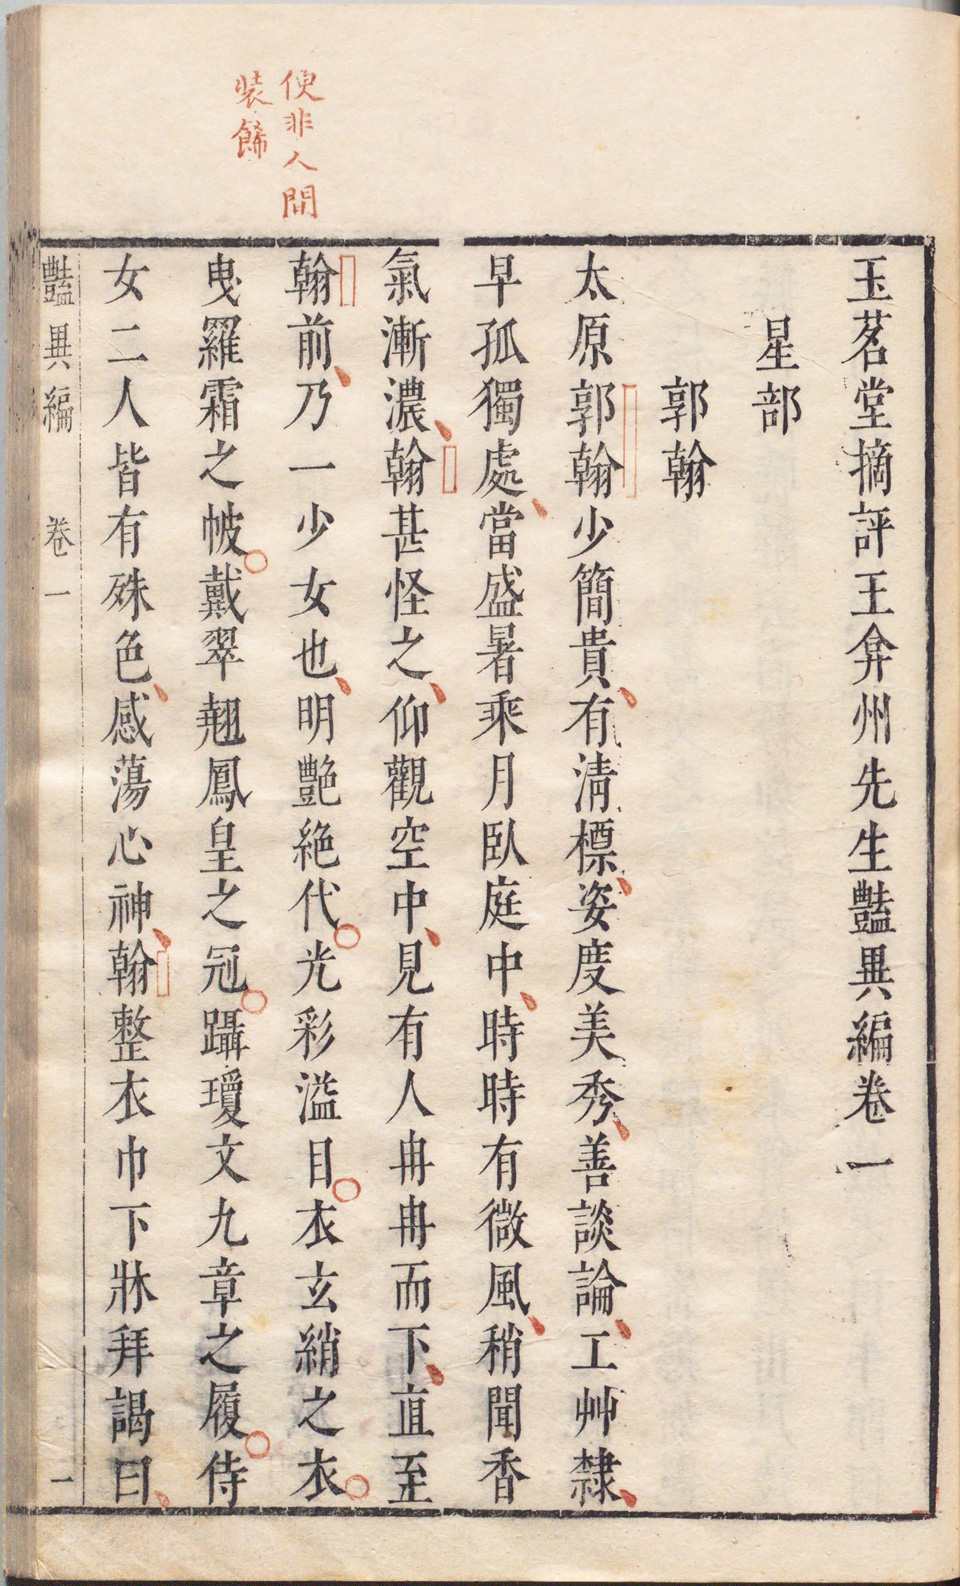 便非人間
装餙
玉茗堂摘評王弇州先生豔異編卷一
星部
郭翰
太原郭翰少簡貴有清標姿度美秀善談論工艸隸
早孤獨處當盛暑乘月臥庭中時時有微風稍聞香
氣漸濃翰甚怪之仰觀空中見有人冉冉而下直至
翰前乃一少女也明艷絶代光彩溢目衣玄綃之衣
曳羅霜之帔戴翠翹鳳皇之冠躡瓊文九章之履侍
女二人皆有殊色感蕩心神翰整衣巾下牀拜謁曰
豔異編 卷一 一